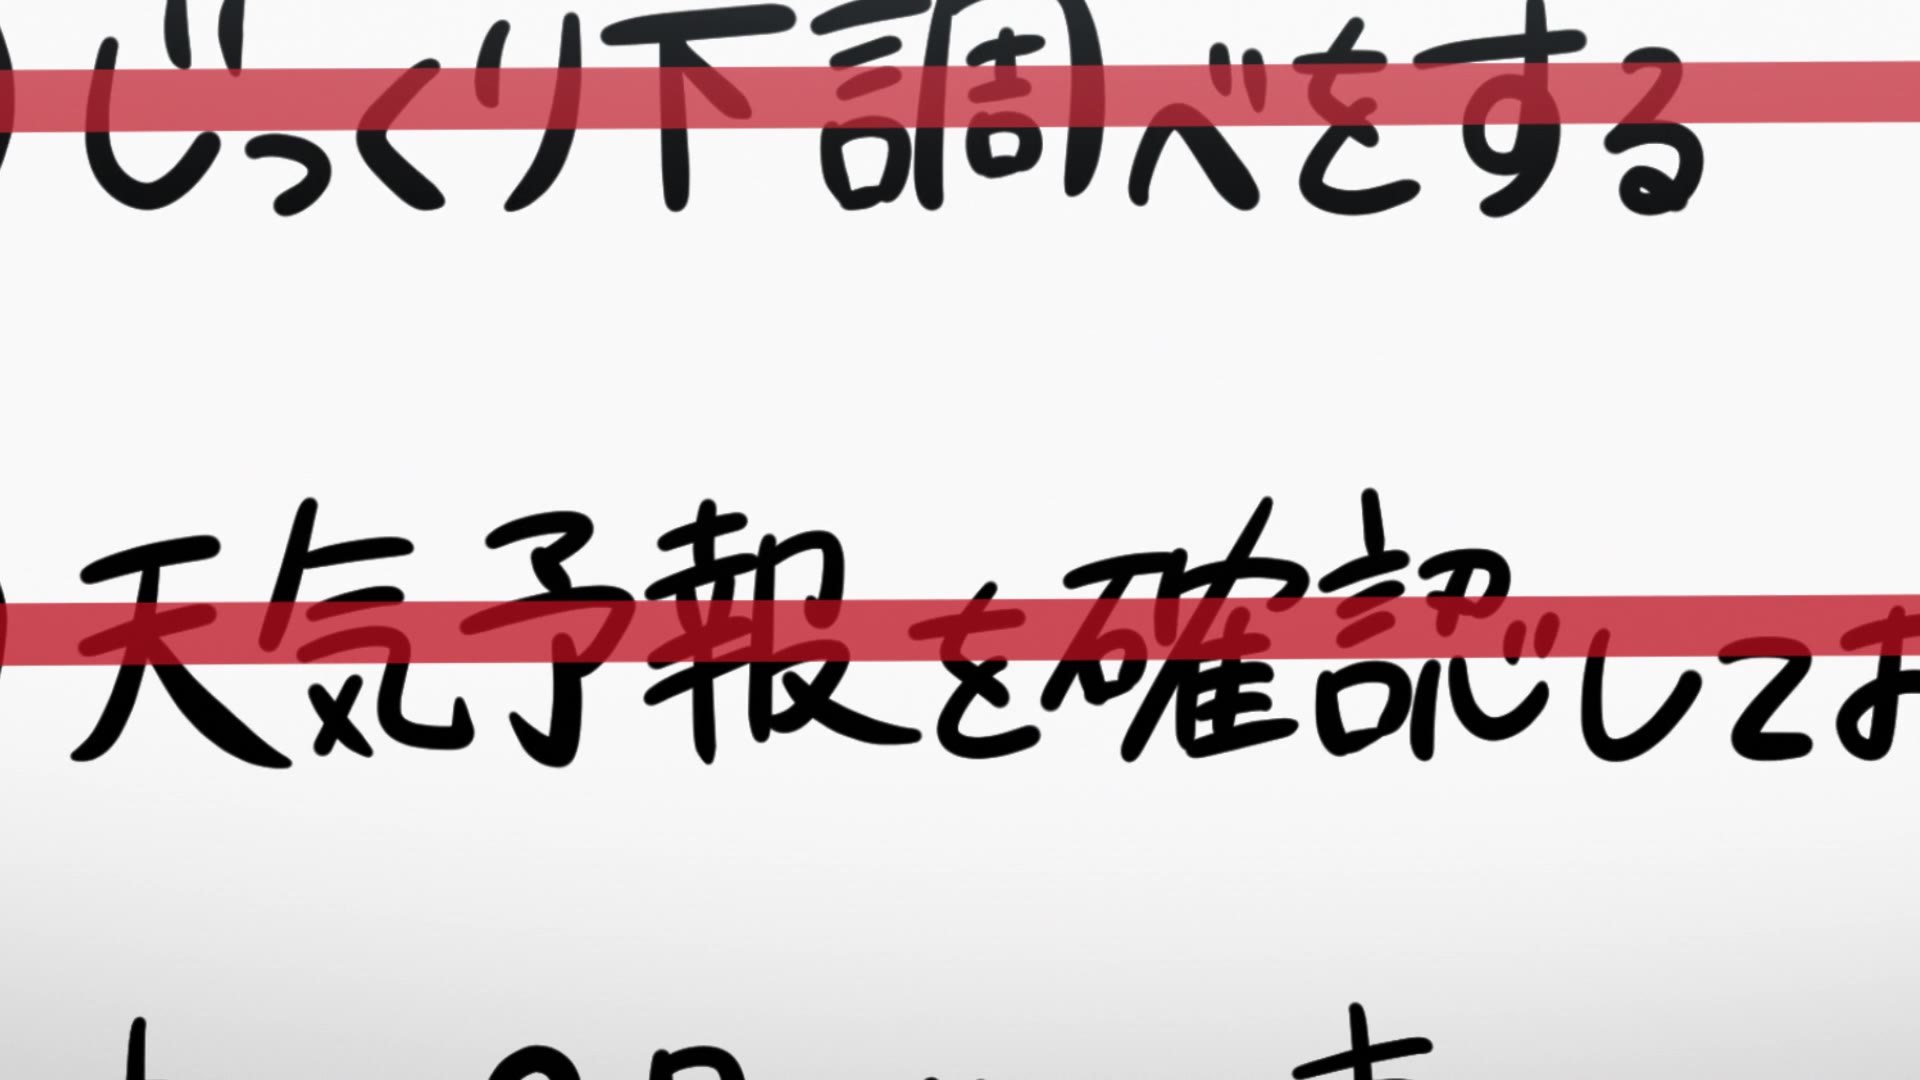 じっくり下調べをする
天気予報を確認してお